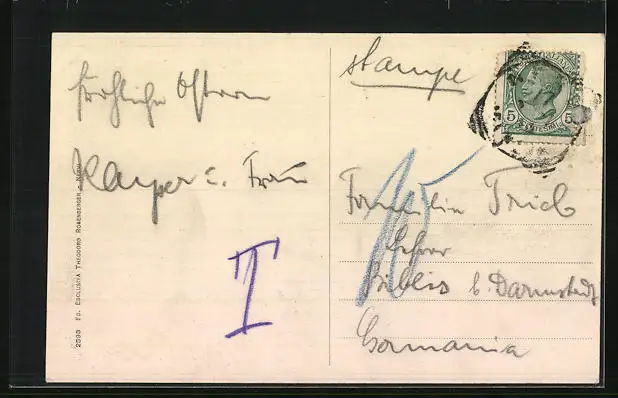 fröhliche Ostern
Kayser u. Frau
T
2593 Ed. Esclusiva Theodoro Rosenberger - Nervi
Stampe
5 5
Familie Trieb
Lehrer
Biblis b. Darmstadt
Germania